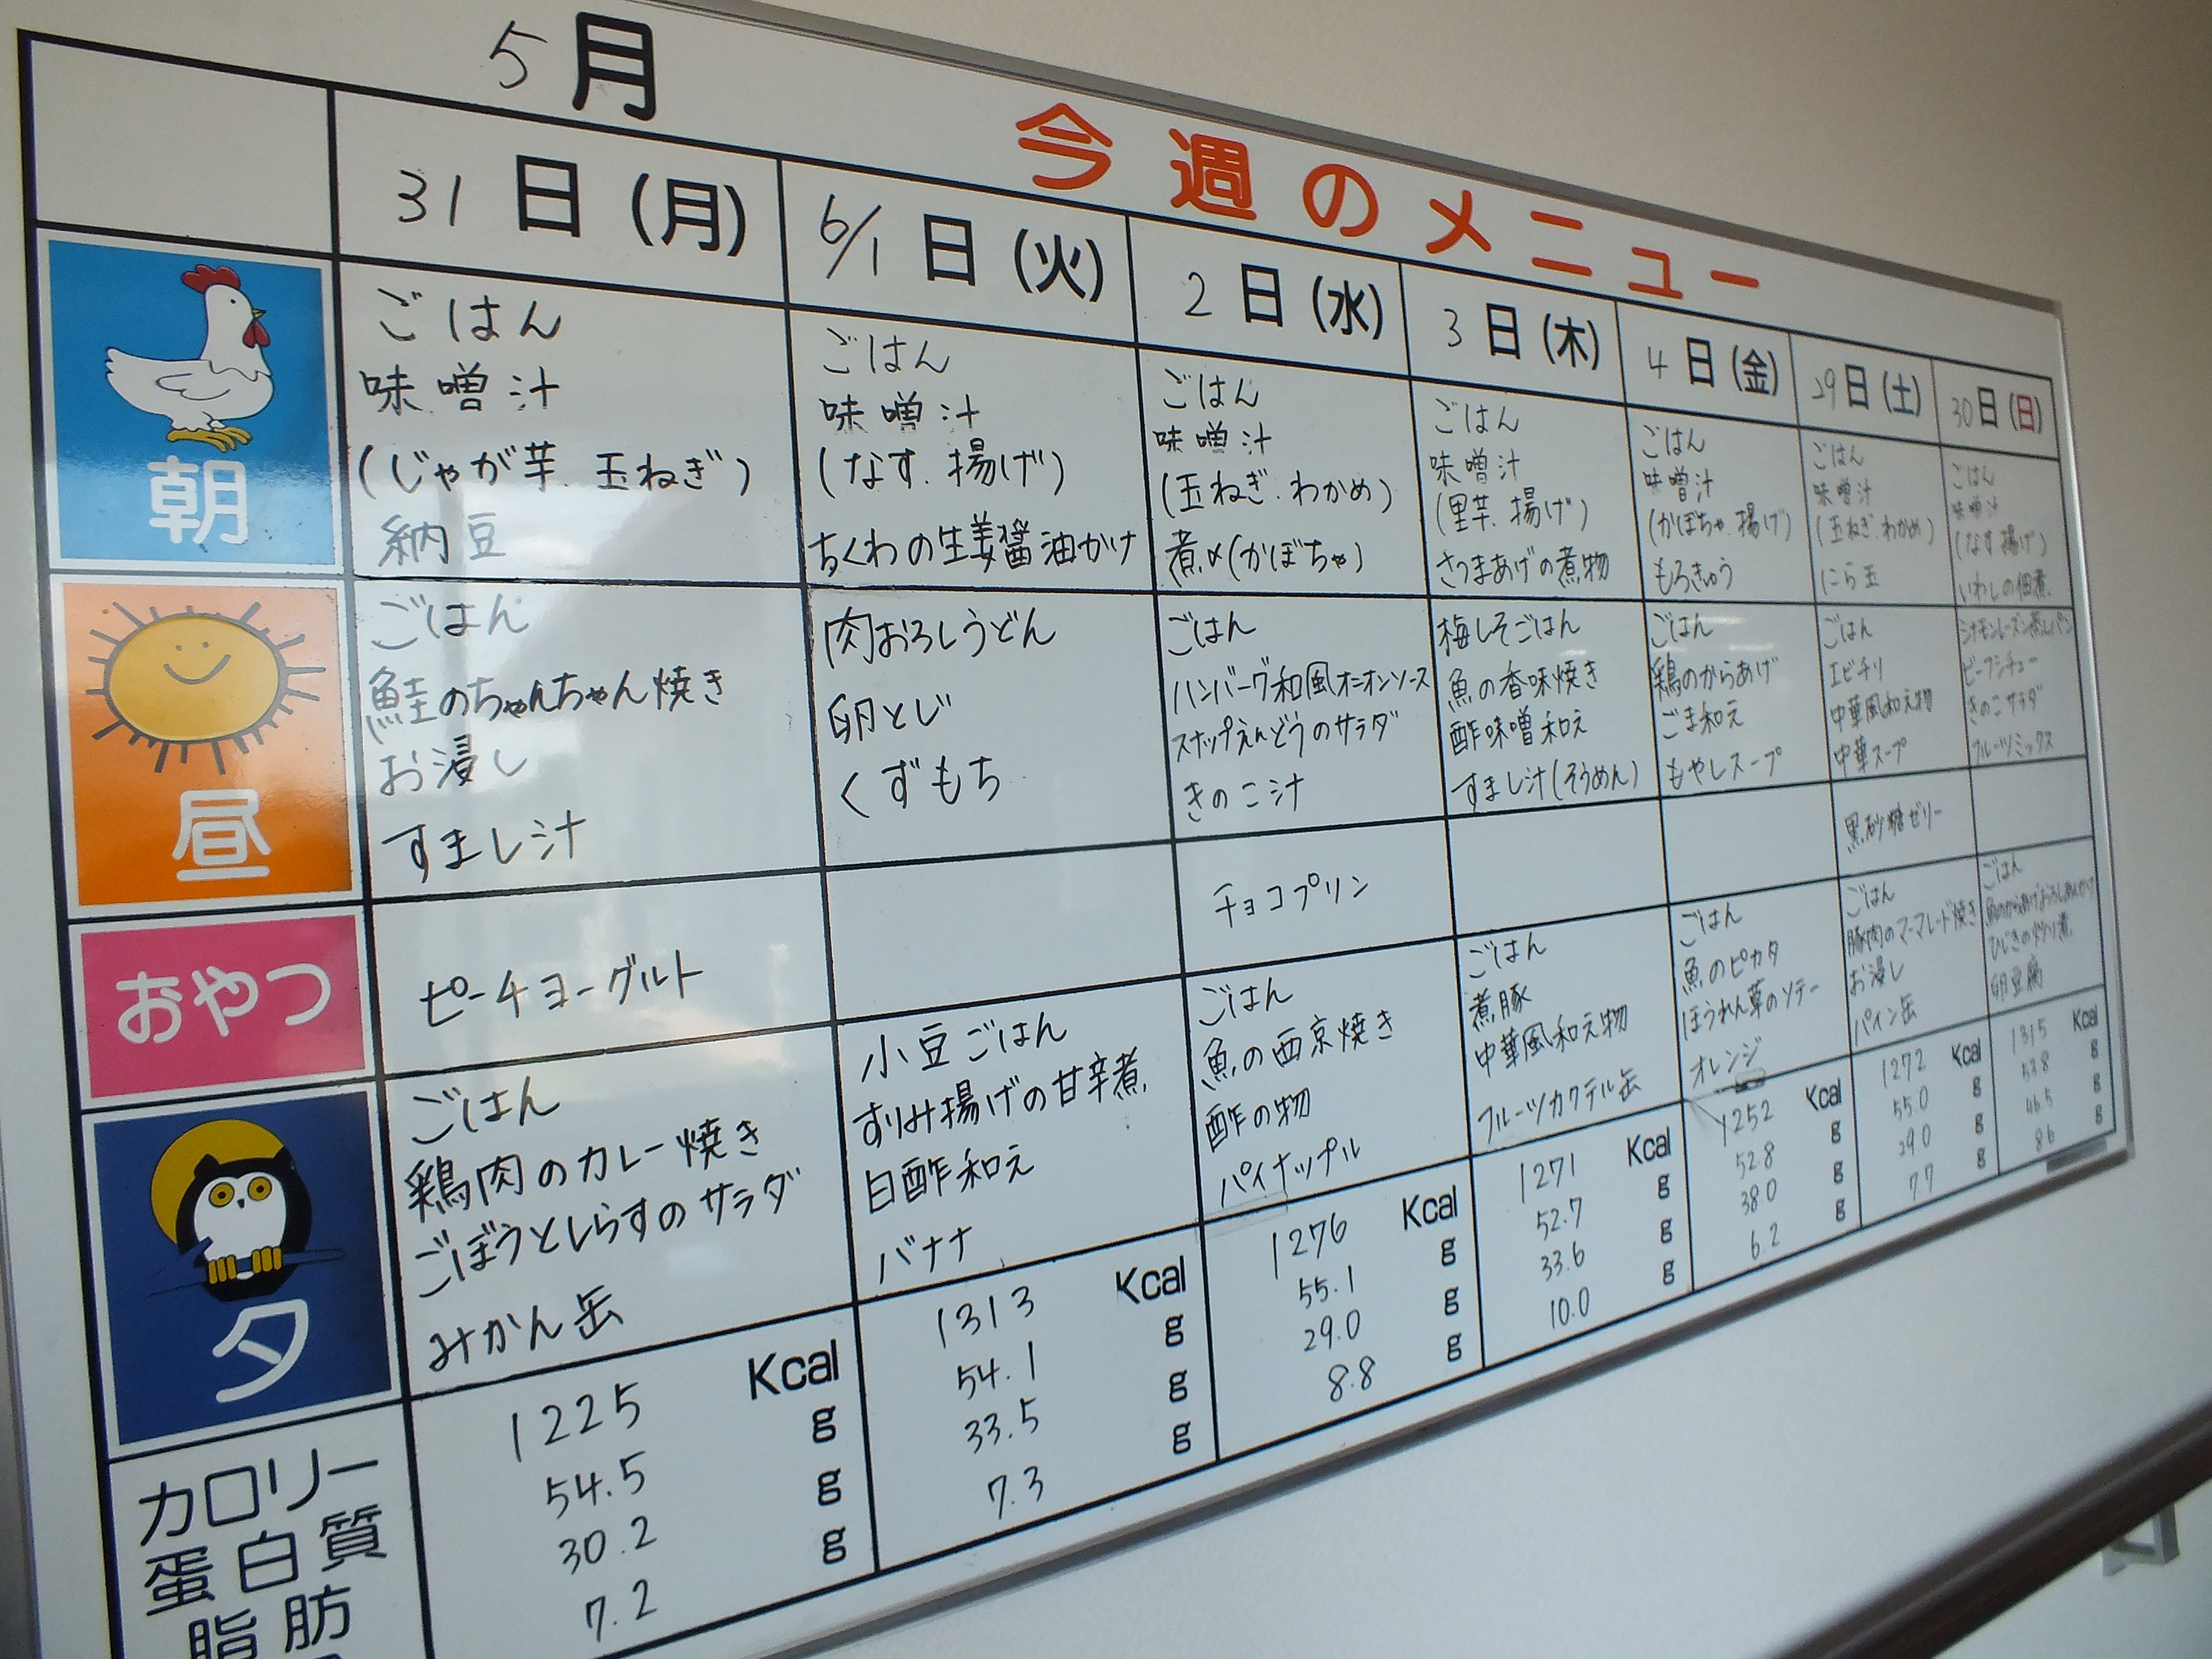 5月
今週のメニュー
31日(月)
6/1日(火)
2日(水)
3日(木)
4日(金)
29日(土)
30日(日)
朝
ごはん
味噌汁
(じゃが芋.玉ねぎ)
納豆
ごはん
味噌汁
(なす.揚げ)
ちくわの生姜醤油かけ
ごはん
味噌汁
(玉ねぎ.わかめ)
煮〆(かぼちゃ)
ごはん
味噌汁
(里芋.揚げ)
さつまあげの煮物
ごはん
味噌汁
(かぼちゃ.揚げ)
もろきゅう
ごはん
味噌汁
(玉ねぎ.わかめ)
にら玉
ごはん
味噌汁
(なす.揚げ)
いわしの佃煮
昼
ごはん
鮭のちゃんちゃん焼き
お浸し
すまし汁
肉おろしうどん
卵とじ
くずもち
ごはん
ハンバーグ和風オニオンソース
スナップえんどうのサラダ
きのこ汁
梅しそごはん
魚の香味焼き
酢味噌和え
すまし汁(そうめん)
ごはん
鶏のからあげ
ごま和え
もやしスープ
ごはん
エビチリ
中華風和え物
中華スープ
シナモンレーズン蒸しパン
ビーフシチュー
きのこサラダ
フルーツミックス
おやつ
ピーチヨーグルト
チョコプリン
黒砂糖ゼリー
夕
ごはん
鶏肉のカレー焼き
ごぼうとしらすのサラダ
みかん缶
小豆ごはん
すりみ揚げの甘辛煮
白酢和え
バナナ
ごはん
魚の西京焼き
酢の物
パイナップル
ごはん
煮豚
中華風和え物
フルーツカクテル缶
ごはん
魚のピカタ
ほうれん草のソテー
オレンジ
ごはん
豚肉のマーマレード焼き
お浸し
パイン缶
ごはん
魚のからあげおろしあんかけ
ひじきの炒り煮
卵豆腐
カロリー
蛋白質
脂肪
1225 Kcal
54.5 g
30.2 g
7.2 g
1313 Kcal
54.1 g
33.5 g
7.3 g
1276 Kcal
55.1 g
29.0 g
8.8 g
1271 Kcal
52.7 g
33.6 g
10.0 g
1252 Kcal
52.8 g
38.0 g
6.2 g
1272 Kcal
55.0 g
29.0 g
7.7 g
1315 Kcal
53.8 g
46.5 g
8.6 g